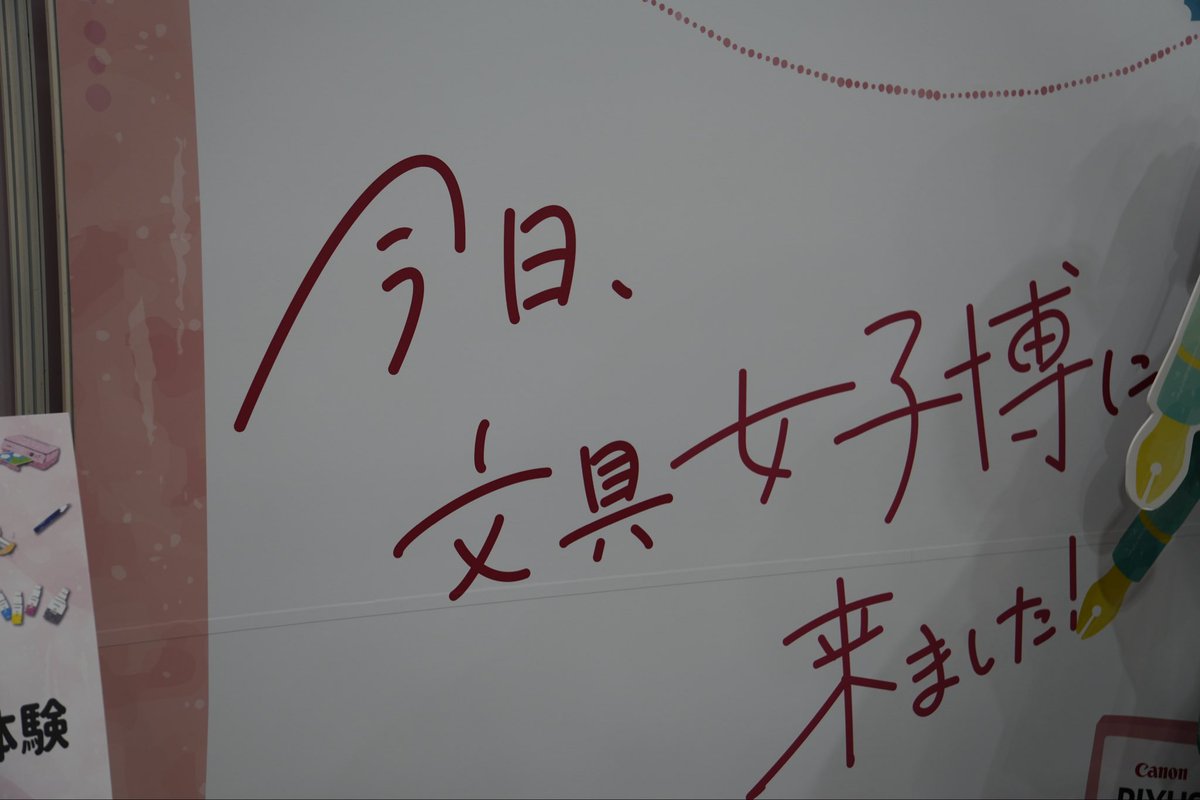 今日、
文具女子博に
来ました!
体験
Canon
PIXUS